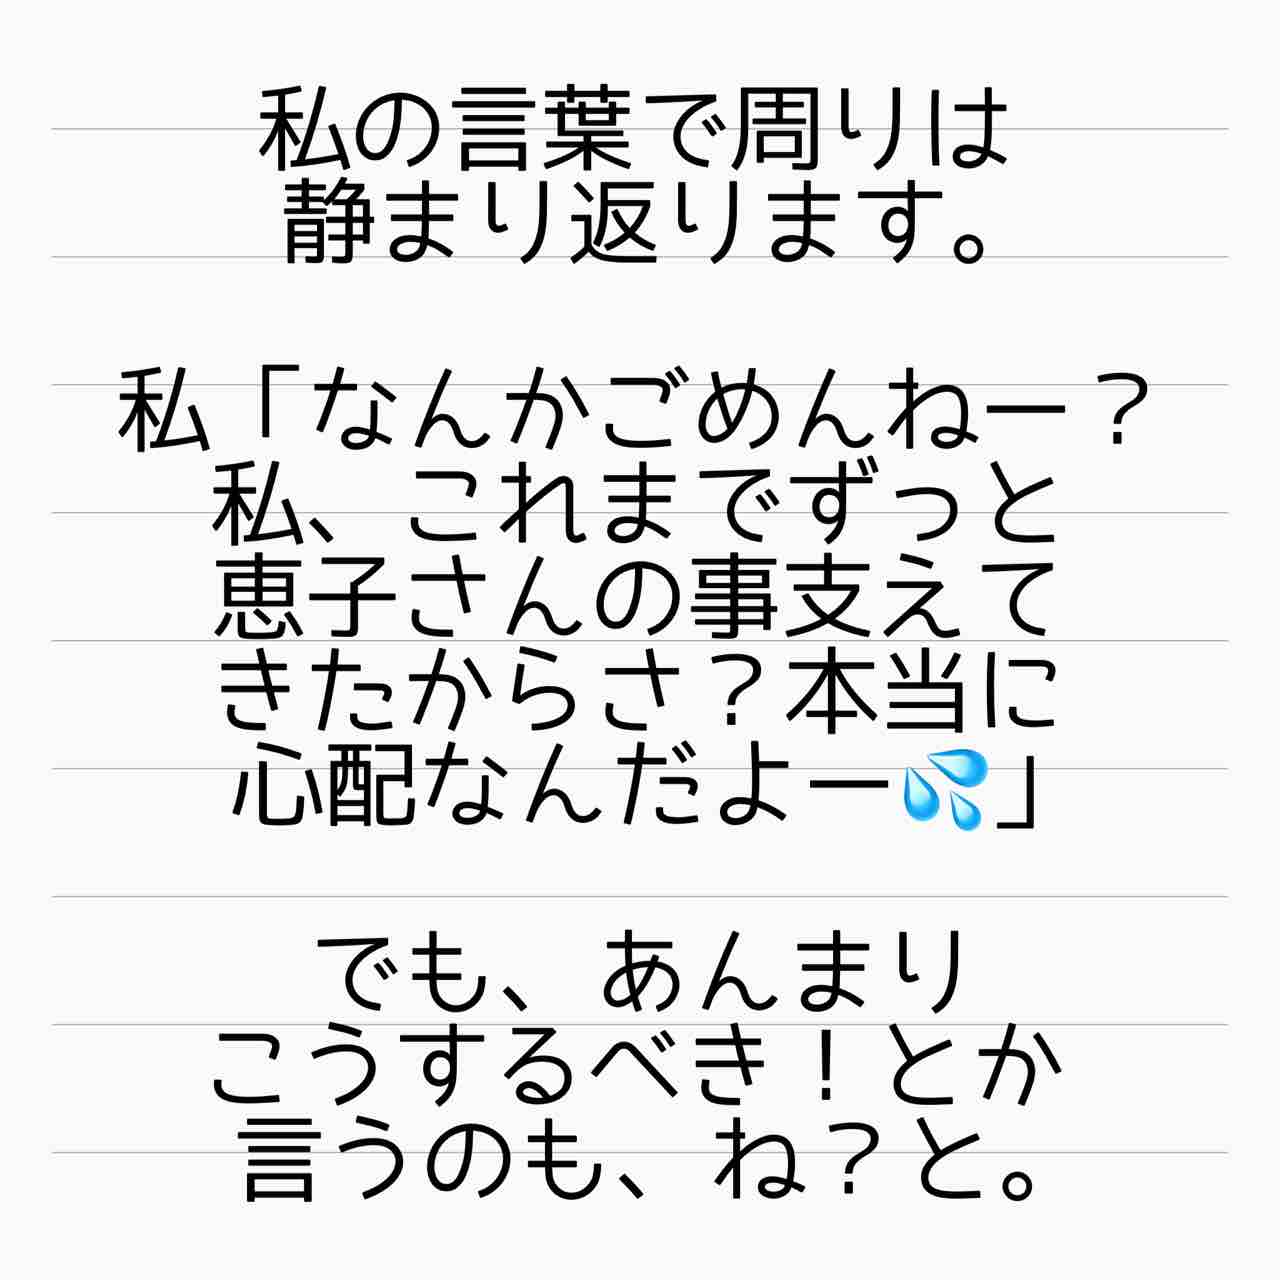 私の言葉で周りは
静まり返ります。
私「なんかごめんねー？
私、これまでずっと
恵子さんの事支えて
きたからさ？本当に
心配なんだよー💦」
でも、あんまり
こうするべき！とか
言うのも、ね？と。